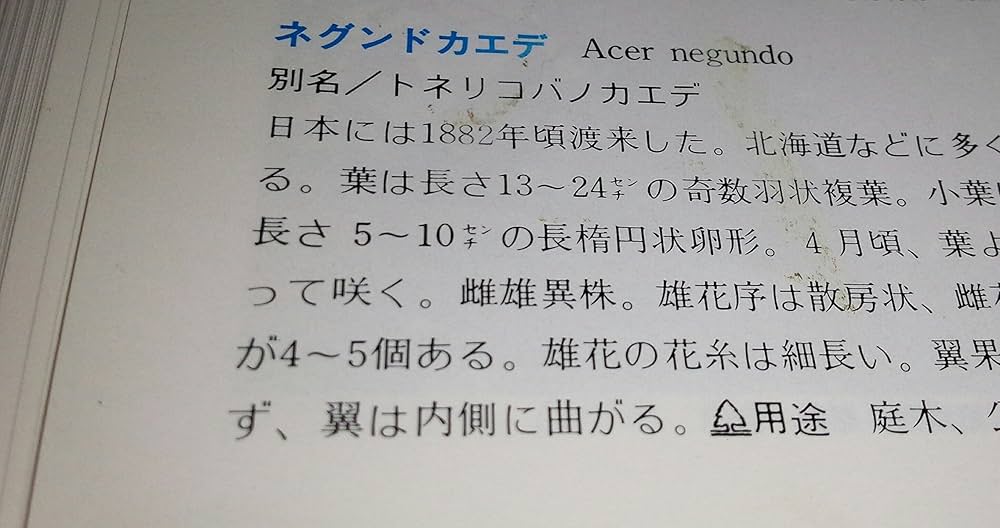 ネグンドカエデ Acer negundo
別名／トネリコバノカエデ
日本には1882年頃渡来した。北海道などに多く
る。葉は長さ13〜24センチの奇数羽状複葉。小葉
長さ 5〜10センチの長楕円状卵形。4月頃、葉よ
って咲く。雌雄異株。雄花序は散房状、雌
が4〜5個ある。雄花の花糸は細長い。翼果
ず、翼は内側に曲がる。用途 庭木、